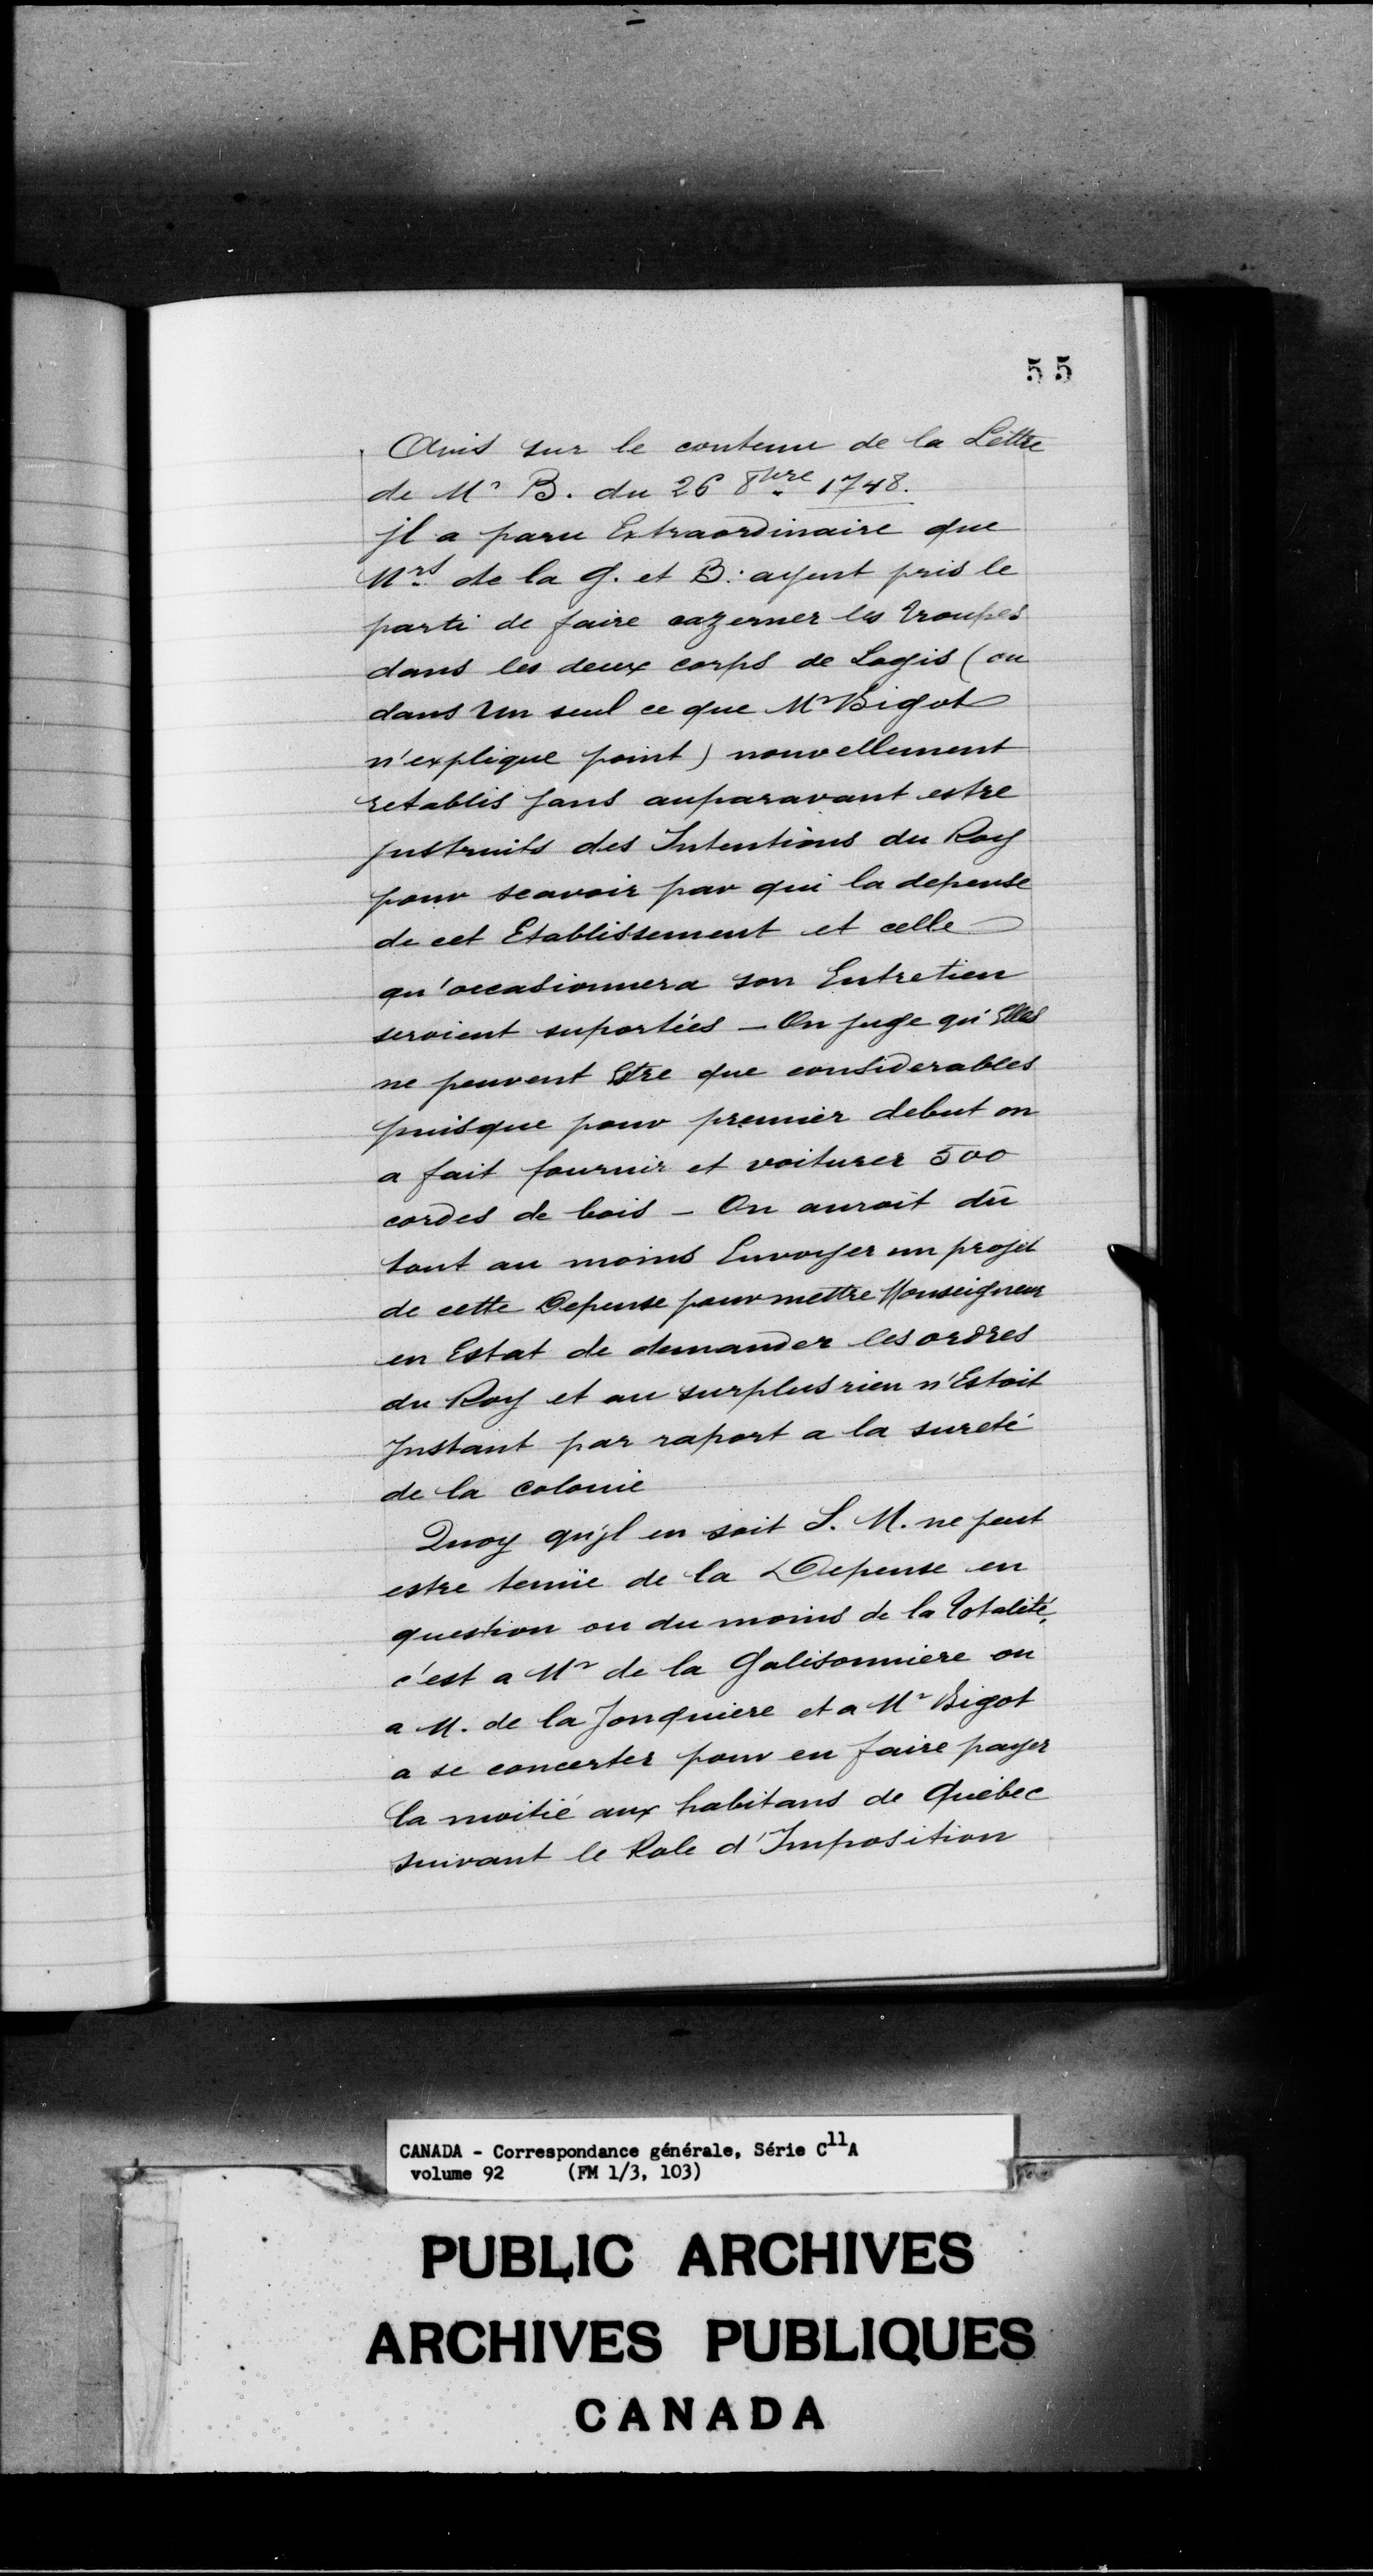 55
Avis sur le contenu de la Lettre
de Mr B. du 26 8bre 1748.
jl a paru Extraordinaire que
Mrs de la G. et B: ayent pris le
parti de faire cazerner les troupes
dans les deux corps de Logis (ou
dans Un seul ce que Mr Bigot
n'explique point) nouvellement
retablis sans auparavant estre
Justruits des Intentions du Roy
pour scavoir par qui la depense
de cet Etablissement et celle
qu'occasionnera son Entretien
seroient suportées - On juge qu'Elles
ne peuvent Estre que considerables
puisque pour premier debut on
a fait fournir et voiturer 500
cordes de bois - On auroit dû
tout au moins Envoyer un projet
de cette Depense pour mettre Monseigneur
en Estat de demander les ordres
du Roy et au surplus rien n'Estoit
Jnstant par raport a la sureté
de la colonie
Quoy qu'jl en soit S. M. ne peut
estre tenüe de la Depense en
question ou du moins de la totalité,
c'est a Mr de la Galisonniere ou
a M. de la Jonquiere et a Mr Bigot
a se concerter pour en faire payer
la moitié aux habitans de Québec
suivant le Role d'Imposition
CANADA - Correspondance générale, Série C11A
volume 92 (FM 1/3, 103)
PUBLIC ARCHIVES
ARCHIVES PUBLIQUES
CANADA